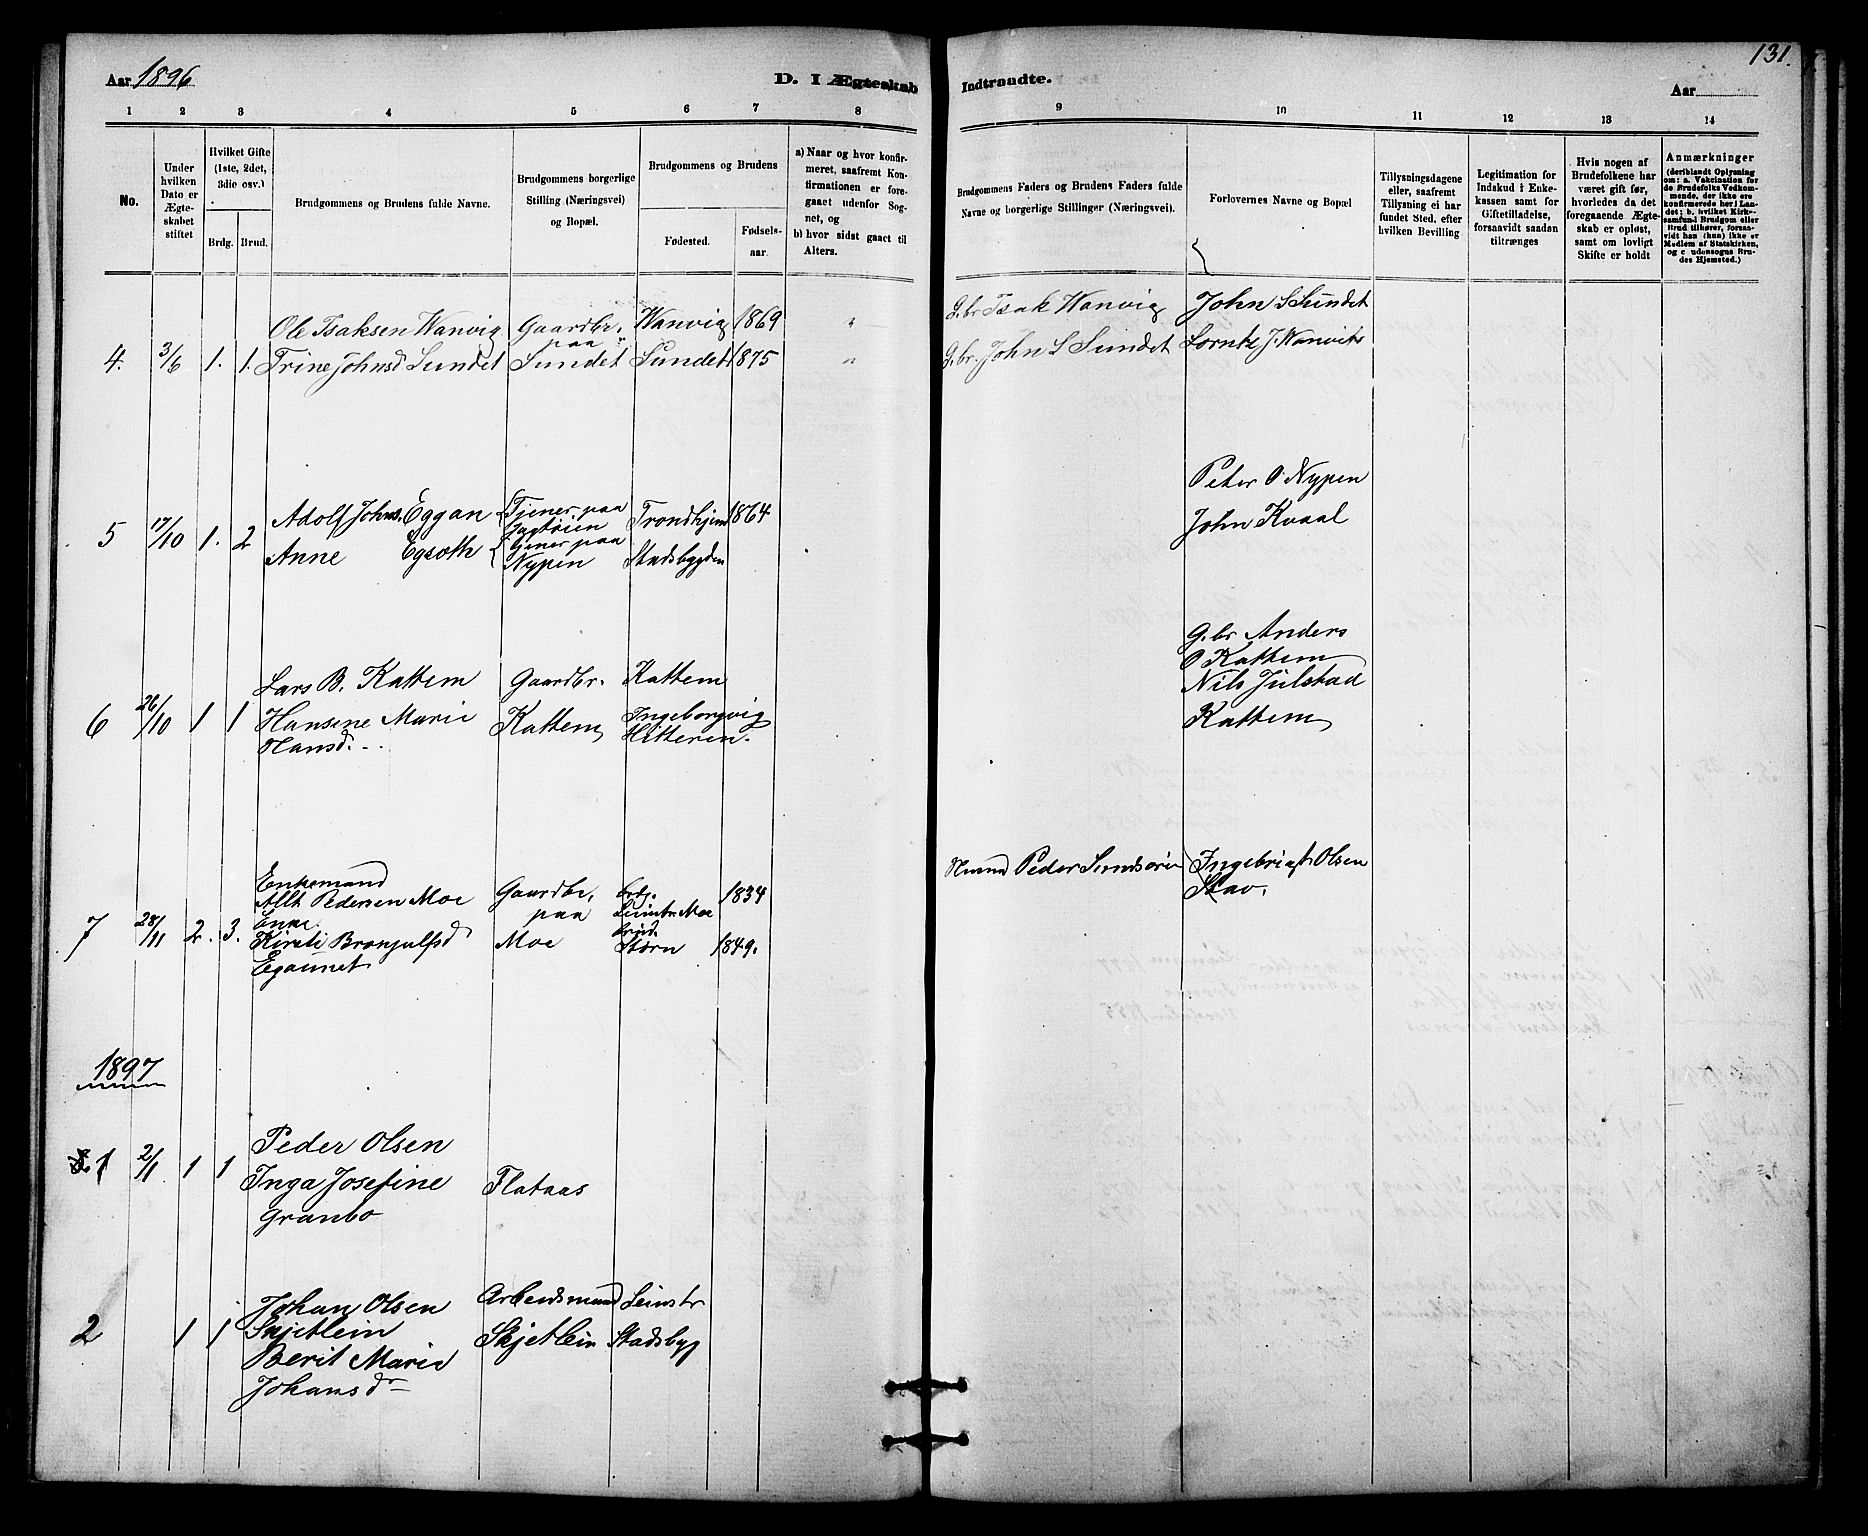 Aar 1896
D. I Ægteskab Indtraadte.
Aar
131.
1 2 3 4 5 6 7 8 9 10 11 12 13 14
No.
Under hvilken Dato er Ægteskabet stiftet
Hvilket Gifte (1ste, 2det, 3die osv.)
Brdg. Brud.
Brudgommens og Brudens fulde Navne.
Brudgommens borgerlige Stilling (Næringsvei) og Bopæl.
Brudgommens og Brudens
Fødested.
Fødselsaar.
a) Naar og hvor konfirmeret, saafremt Konfirmationen er foregaaet udenfor Sognet, og
b) hvor sidst gaaet til Alters.
Brudgommens Faders og Brudens Faders fulde Navne og borgerlige Stillinger (Næringsvei).
Forlovernes Navne og Bopæl
Tillysningsdagene eller, saafremt Tillysning ei har fundet Sted, efter hvilken Bevilling
Legitimation for Indskud i Enkekassen samt for Giftetilladelse, forsaavidt saadan tiltrænges
Hvis nogen af Brudefolkene har været gift før, hvorledes da det foregaaende Ægteskab er opløst, samt om lovligt Skifte er holdt
Anmærkninger (deriblandt Oplysning om: a. Vakcination for de Brudefolks Vedkommende, der ikke ere konfirmerede her i Landet; b. hvilket Kirkesamfund Brudgom eller Brud tilhører, forsaavidt han (hun) ikke er Medlem af Statskirken, og c udensogns Brudes Hjemsted.)
Ole Isaksen Wanvig Gaardbr. Wanvig 1869 " G.br Isak Wanvig John S Sundet
paa
4. 3/6 1. 1. Trine Johnsd Sundet Sundet Sundet 1875 " G.br. John S Sundet Lorntz J. Wanvik
Peter O Nypen
Adolf Johns. Eggan Tjener paa Trondhjem 1864 John Kvaal
Jagtøien
5 17/10 1. 2 Anne Egsoth tjener paa Stadsbygden
Nypen
G.br Anders
O Kattem
Lars B. Kattem Gaardbr. Kattem Nils Julstad
6 26/10 1 1 Hansine Marie Kattem Ingeborgvig Kattem
Hansd. Hitteren.
Peder Sundsøre Ingebrigt Olsen
Enkemand Stav.
Pedersen Moe Gaardbr. brdg. 1834
Enke paa Leinstr. Moe
7 28/11 2. 3. Kirsti Bronjulfsd Moe brud. Støren 1849.
Egaunet
1897
1 2/1 1 1 Peder Olsen
Inga Josefine Flataas
Granbo
Johan Olsen Arbeidsmand Leinstr
2 1 1 Skjetlein Skjetlein Stadsbyg
Berit Marie
Johansdr